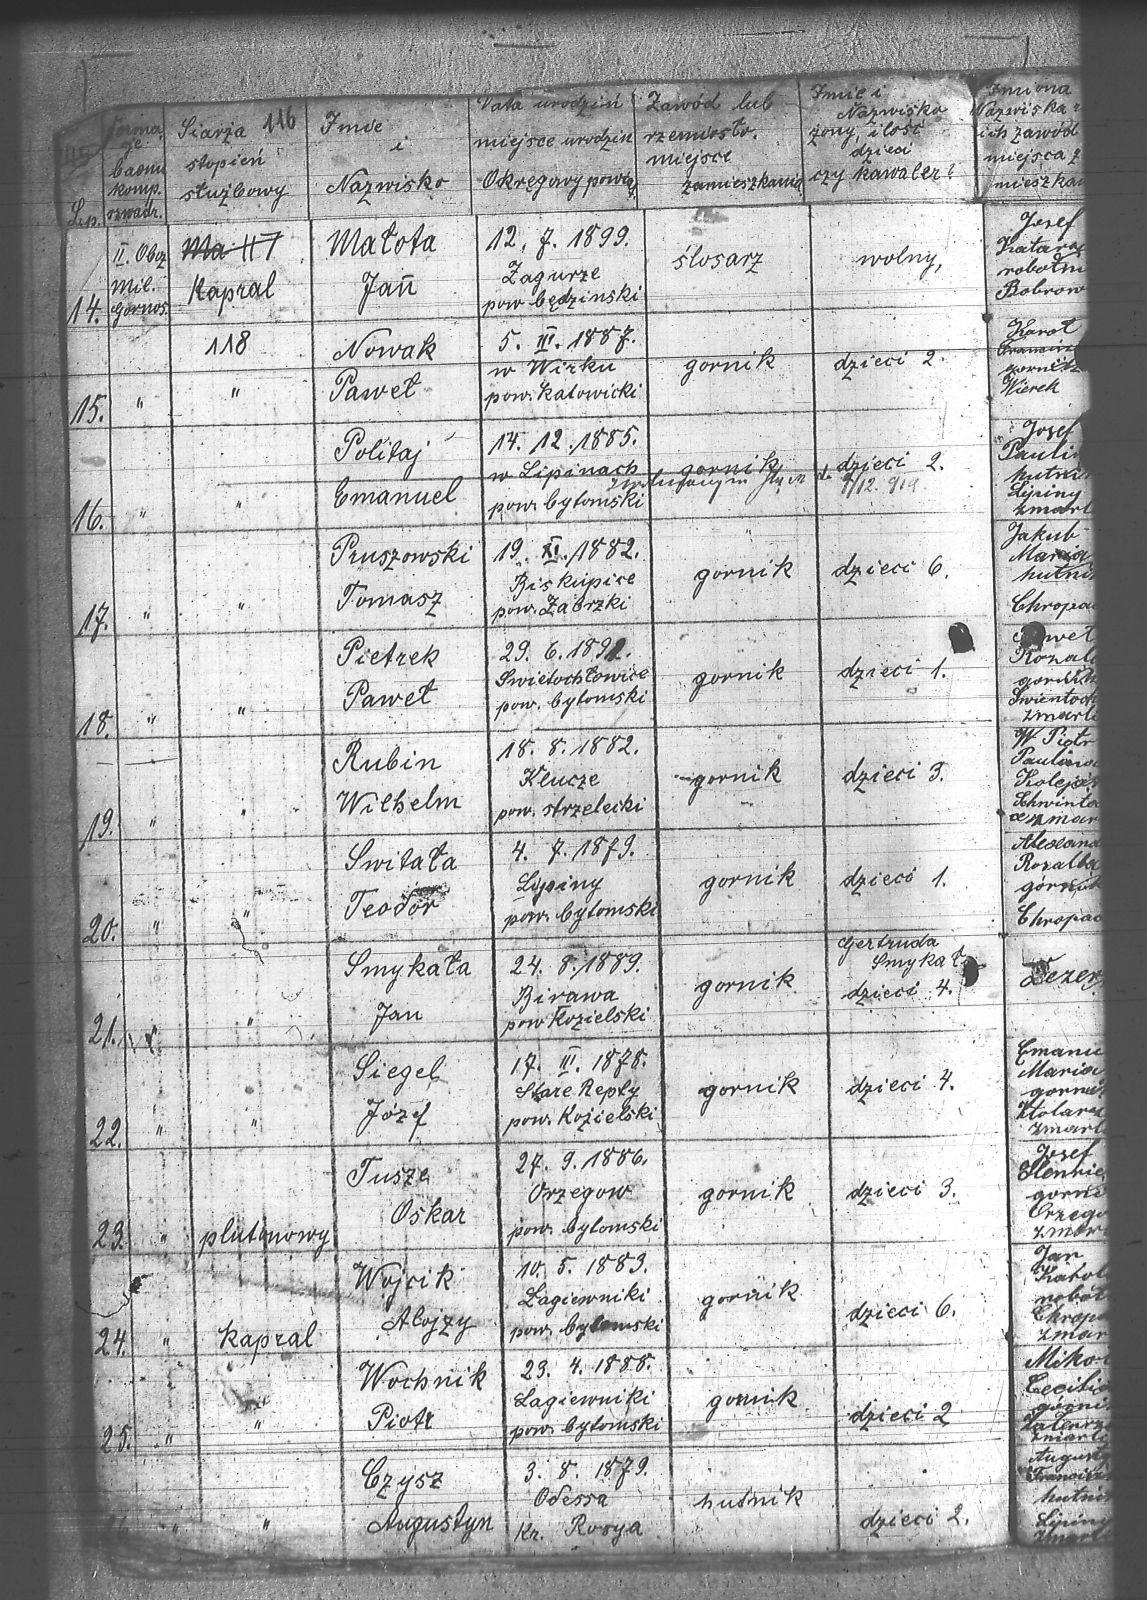 Lp.
Forma
baonu
komp.
szwadr.
Siarża 116
stopień
służbowy
Imie
i
Nazwisko
Data urodzin
miejsce urodzin
Okręgowy powią
Zawód lub
rzemiosło.
miejsce
zamieszkania
Imie i
Nazwisko
żony, ilość
dzieci
czy kawaler?
Imiona
Nazwiska
ich zawód
miejsca z
mieszkan
14.
II. Oboz
Mil.
Gornos.
Ma 117
Kapral
Małota
Jan
12. 7. 1899.
Zagurze
pow będzinski
ślosarz
wolny,
Josef
Katarz
robotni
Bobrow
15.
"
118
"
Nowak
Paweł
5. III. 1887.
w Wirku
pow. Katowicki
gornik
dzieci 2.
Karol
Francisz
gornik
Wierek
16.
"
"
Politaj
Emanuel
14. 12. 1885.
w Lipinach
pow. bytomski
gornik
dzieci 2.
1/12. 919.
Josef
Paulin
hutnik
Lipiny
zmarł
17.
"
"
Pruszowski
Tomasz
19. XI. 1882.
Biskupice
pow. Zabrzki
gornik
dzieci 6.
Jakub
Maria
hutnik
Chropac
18.
"
"
Pietrek
Paweł
29. 6. 1892.
Swietochłowice
pow. bytomski
gornik
dzieci 1.
Paweł
Rozal
gornik
Swientoch
zmarł
19.
"
"
Rubin
Wilhelm
18. 8. 1882.
Klucze
pow. strzelecki
gornik
dzieci 3.
W Piotr
Paulina
Kolejaz
Schwinto
zmar
20.
"
"
Switała
Teodor
4. 7. 1879.
Lipiny
pow. bytomski
gornik
dzieci 1.
Alexand
Rozalia
gornik
Chropac
21.
"
"
Smykała
Jan
24. 8. 1889.
Birawa
pow Kozielski
gornik
Gertruda
Smykał.
dzieci 4.
22.
"
"
Siegel
Józef
17. III. 1878.
Stare Repty
pow. Kozielski
gornik
dzieci 4.
Emanu
Maria
gornik
zmarł
23.
"
plutonowy
Tusze
Oskar
27. 9. 1886.
Orzegow
pow. bytomski
gornik
dzieci 3.
Josef
Henrie
gornik
Orzego
zmar
24.
"
kapral
Wojcik
Alojzy
10. 5. 1883.
Łagiewniki
pow. bytomski
gornik
dzieci 6.
Jan
Karol
robot
Chropa
zmar
25.
"
"
Wochnik
Piotr
23. 4. 1888.
Łagiewniki
pow. bytomski
gornik
dzieci 2
Miko
Cecilia
górnik
zmarł
"
"
Czysz
Augustyn
3. 8. 1879.
Odessa
Kr. Rosya
hutnik
dzieci 2.
August
Francisz
hutnik
Lipiny
zmarł